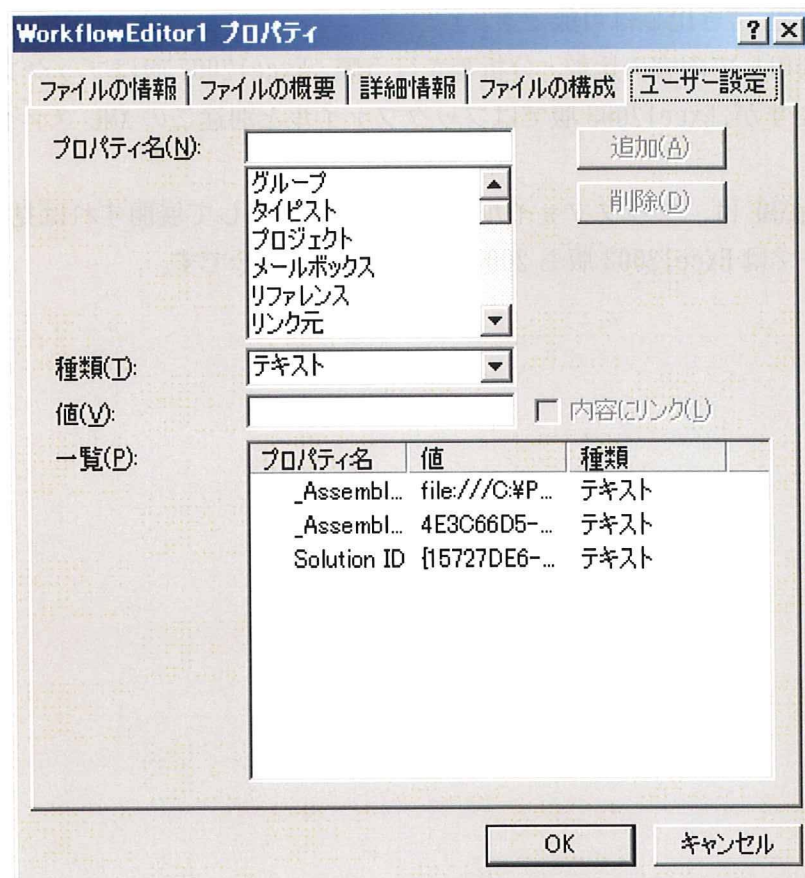 WorkflowEditor1 プロパティ
ファイルの情報 ファイルの概要 詳細情報 ファイルの構成 ユーザー設定
プロパティ名(N):
追加(A)
グループ
タイピスト
プロジェクト
メールボックス
リファレンス
リンク元
削除(D)
種類(T):
テキスト
値(V):
内容にリンク(L)
一覧(P):
プロパティ名 値 種類
_Assembl... file:///C:¥P... テキスト
_Assembl... 4E3C66D5-... テキスト
Solution ID {15727DE6-... テキスト
OK キャンセル